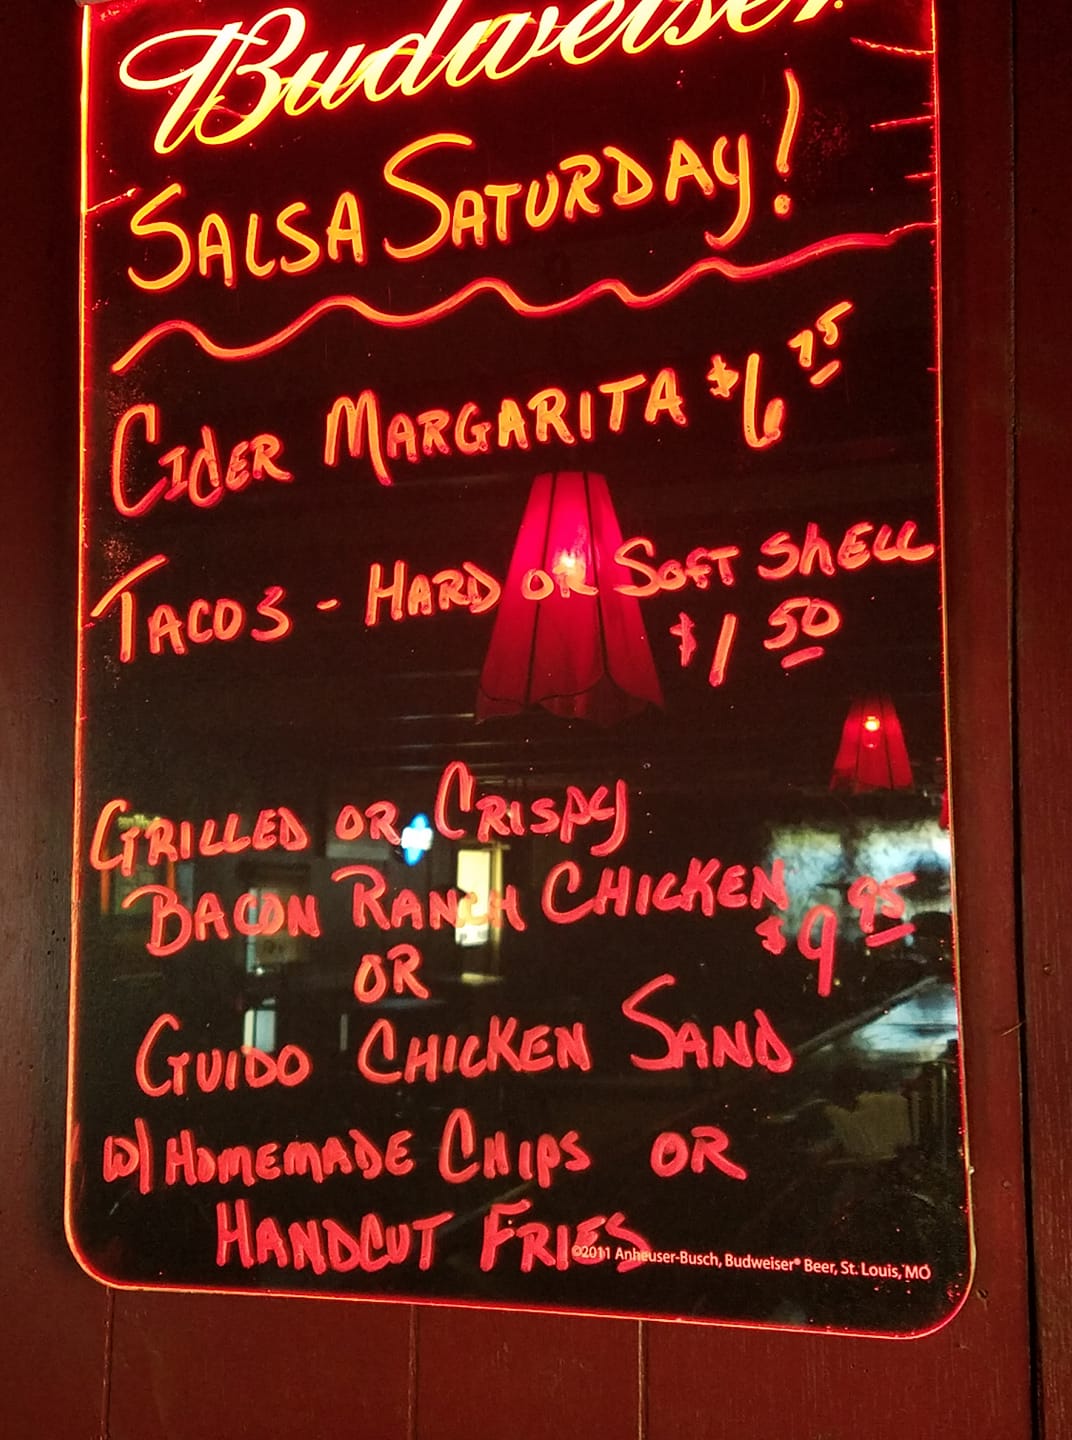 Budweiser
SALSA SATURDAY!
CIDER MARGARITA $6 75
TACOS - HARD OR SOFT SHELL
$1 50
GRILLED OR CRISPY
BACON RANCH CHICKEN
$9 95
OR
GUIDO CHICKEN SAND
W/ HOMEMADE CHIPS OR
HANDCUT FRIES
©2011 Anheuser-Busch, Budweiser® Beer, St. Louis, MO